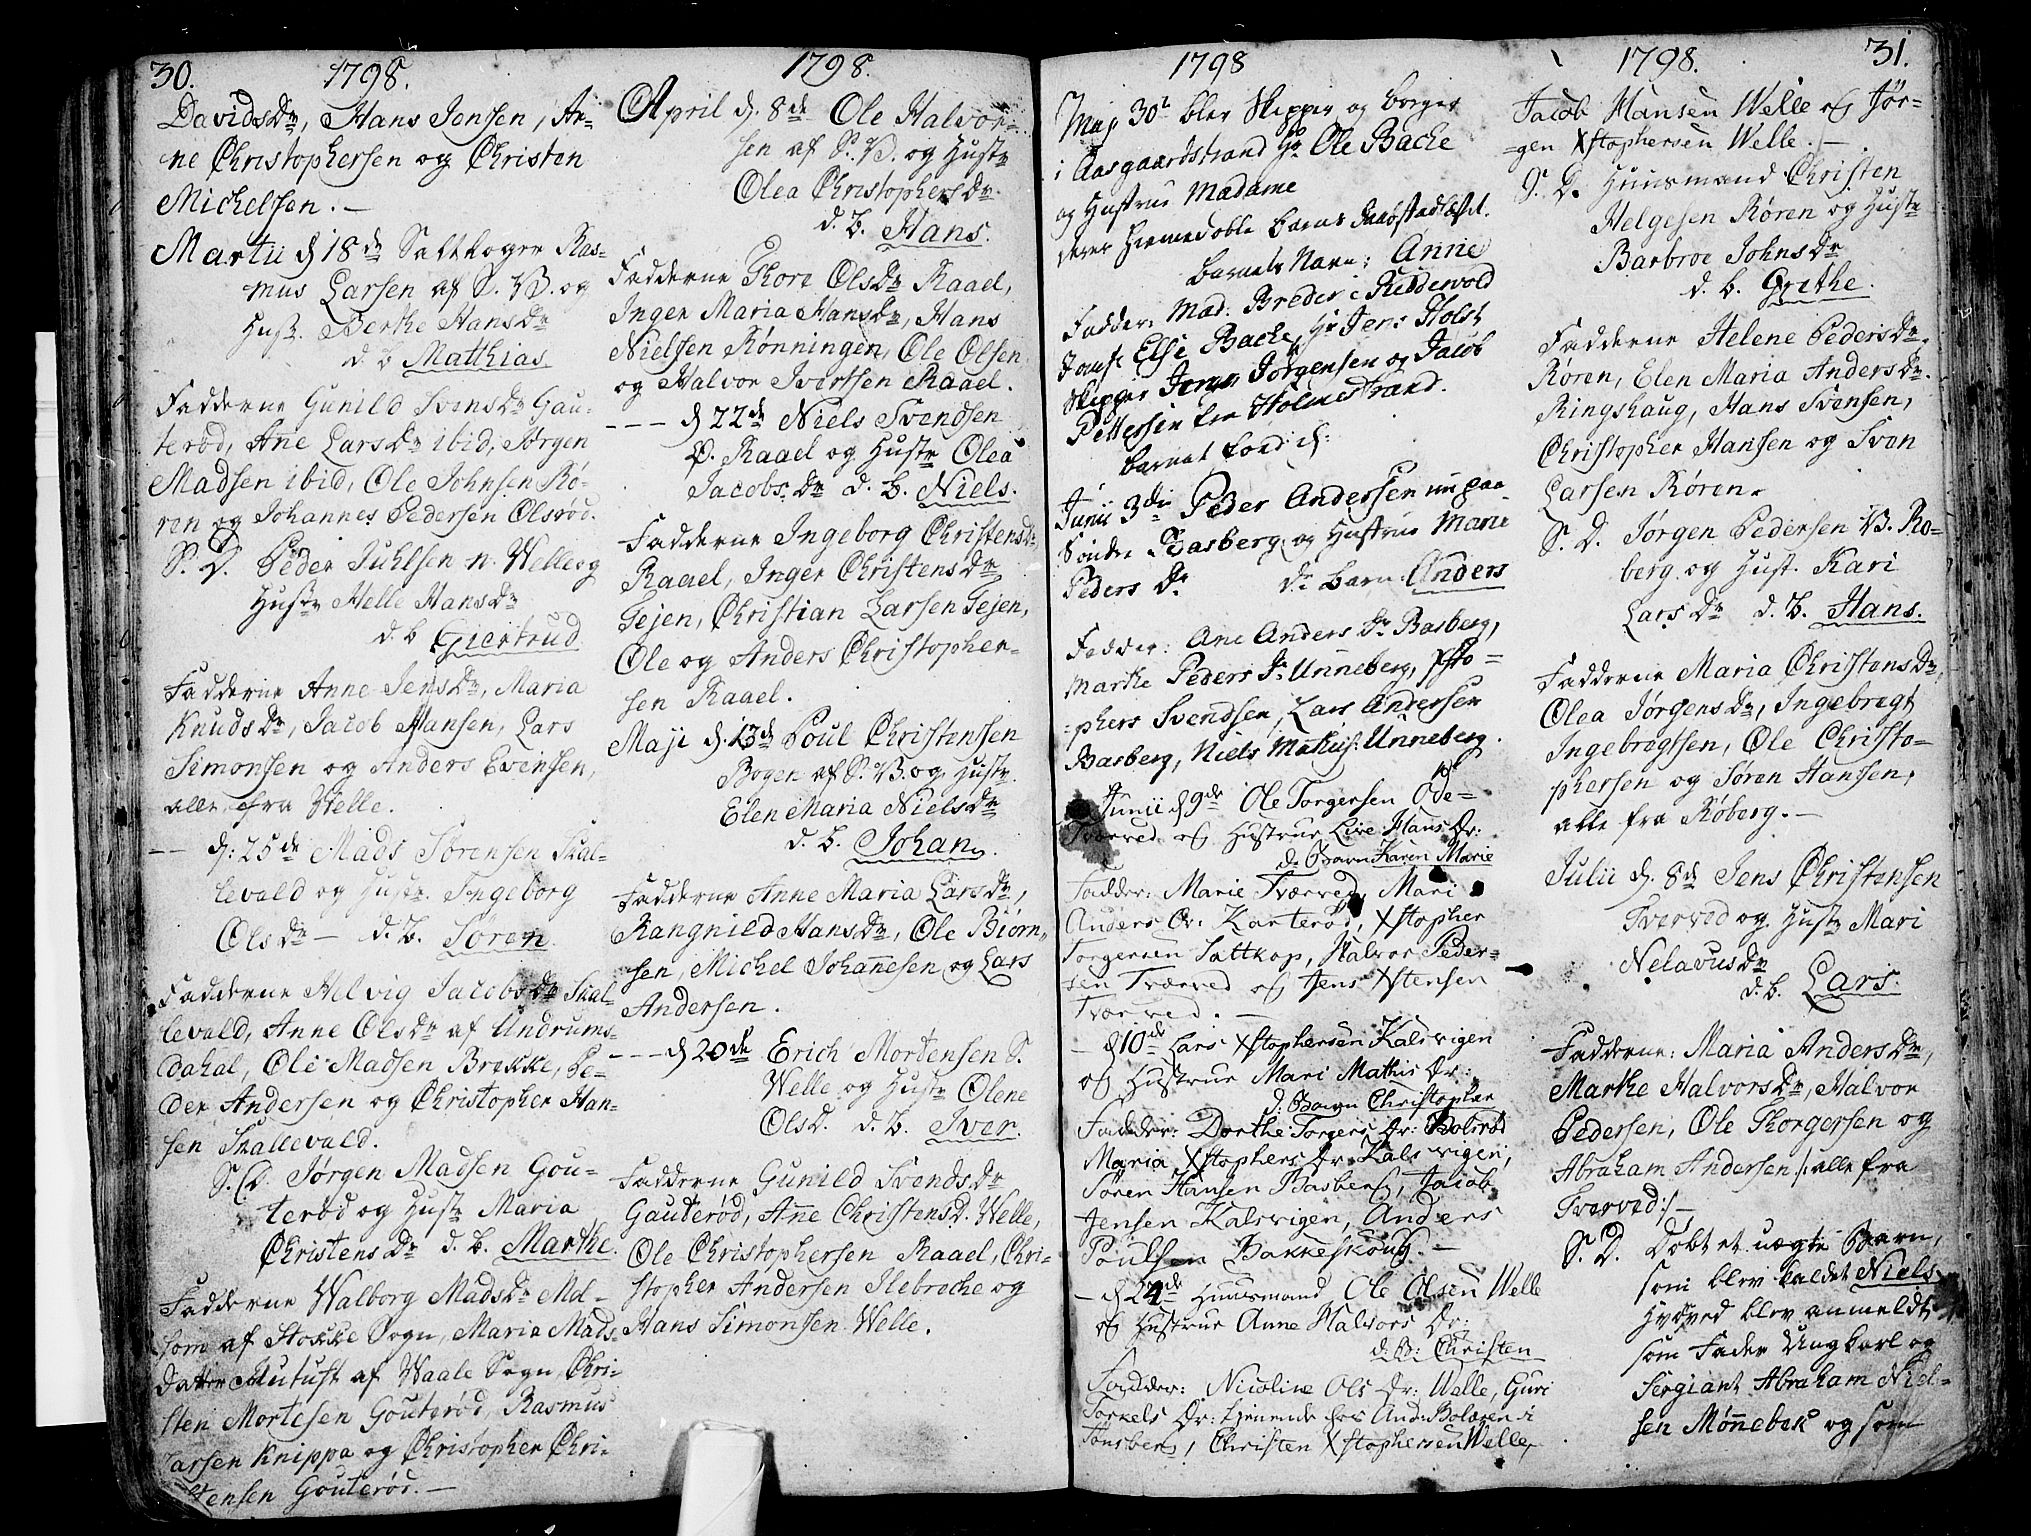 30. 1798.
DavidsDr, Hans Jensen, Ar-
ne Christophersen og Christen
Michelsen. —
Martii d. 18de Saltkoger Ras-
mus Larsen af S. B. og
Hust. Berthe HansDr
d. b. Matthias.
Fadderne Gunild SvensDr Gau-
terød, Ane LarsDr ibid, Jørgen
Madsen ibid, Ole Johnsen Rø-
ren og Johannes Pedersen Olsrød.
S. D. Peder Juhlsen n. Welle og
Hustr Helle HansDr
d. b. Giertrud.
Fadderne Anne JensDr, Maria
KnudsDr, Jacob Hansen, Lars
Simonsen og Anders Evensen,
alle fra Welle.
— d: 25de Mads Sørensen Skal-
levald og Hustr. Ingeborg
OlsDr — d. b. Søren.
Fadderne Helvig JacobsDr Skal-
levald, Anne OlsDr af Undrums-
dahal, Ole Madsen Brekke, Pe-
der Andersen og Christopher Han-
sen Skallevald.
S. D. Jørgen Madsen Gou-
terød og Hustr Maria
ChristensDr d. b. Marthe.
Fadderne Walborg MadsDr Mel-
som af Stokke Sogn, Maria Mads
Datter af Waale Sogn, Chri-
sten Mortesen Gouterød, Rasmus
Larsen Knippa og Christopher Chri-
stensen Gouterød. —
1798.
April d. 8de Ole Halvor-
sen af S. B. og Hustr
Olea ChristophersDr.
d. b. Hans.
Fadderne Thore OlsDr Raael,
Inger Maria HansDr, Hans
Nielsen Rønningen, Ole Olsen
og Halvor Iversen Raael.
--- d 22de Niels Svendsen
Ø. Raael og Hustr Olea
JacobsDr d. b. Niels.
Fadderne Ingeborg ChristensDr
Raael, Inger ChristensDr
Tejen, Christian Larsen Tejen,
Ole og Anders Christopher-
sen Raael.
Maji d. 13de Poul Christensen
Bogen af S. B. og Hustr.
Elen Maria NielsDr
d. b. Johan.
Fadderne Anne Maria LarsDr,
Rangnild HansDr, Ole Biørn-
sen, Michel Johanesen og Lars
Andersen.
--- d 20de Erich Mortensen S.
Welle og Hustr Olene
OlsD. d. b. Iver.
Fadderne Gunild SvendsDr
Gauterød, Anne ChristensD. Welle,
Ole Christophersen Raael, Chri-
stopher Andersen Ilebreche og
Hans Simonsen Welle.
1798
Maj 30t blev Skipper og borger
i Aasgaardstrand Hr Ole Backe
og Hustrue Madame
deres hiemedøbte barns daab stadfæstet.
barnets Navn: Anne
Fadder: Mad: Breder i Kiddewold
Jomf Else Backe, Hr Jens Holst
Skipper Jørgensen og Jacob
Pettersen fra Holmestrand.
Junii 3die Peder Andersen nu paa
Søndre Basberg og Hustrue Marie
Peders Dr. Ds barn: Anders
Fadder: Ane Anders Dr Basberg,
Marthe Peders Dr Unneberg, Xsto-
phers Svendsen, Lars Andersen
Basberg, Niels Mathis: Unneberg.
Junii d 9de Ole Torgersen Øde-
Tværved og Hustrue Live Hans Dr:
d: Barn Karen Marie
Fadder: Marie Tværved, Mari
Anders Dr: Karterød, Xstopher
Torgersen Saltkop, Halvor Peder-
sen Tværved og Jens Xstensen
Tværved. —
— d 10de Lars Xstophersen Kalsvigen
og Hustrue Mari Mathis Dr:
d: Barn Christopher
Fadder: Dorthe Torgers Dr: Bolsrød
Maria Xstophers Dr: Kalsvigen,
Søren Hansen Basberg, Jacob
Jensen Kalsvigen, Anders
Poulsen Bakkeskoug. —
— d 24de Huusmand Ole Olsen Welle
og Hustrue Anne Halvors Dr:
d: B: Christen
Fadder: Nicoline Ols Dr: Welle, Guri
Torkels Dr: tienende hos And: Bolæren i
Tønsberg, Christen Xstophersen Welle,
1798. 31.
Jacob Hansen Welle og Jør-
gen Xstophersen Welle. —
S. D. Huusmand Christen
Helgesen Røren og Hustr
Barbroe JohnsDr
d. b. Grethe.
Fadderne Helene PedersDr.
Røren, Elen Maria AndersDr.
Ringshaug, Hans Svensen,
Christopher Hansen og Sven
Larsen Røren.
S. D. Jørgen Pedersen V. Ro-
berg og Hust. Kari
LarsDr d. b. Hans.
Fadderne Maria ChristensDr,
Olea JørgensDr, Ingebregt
Ingebregtsen, Ole Christo-
phersen og Søren Hansen,
alle fra Røberg. —
Julii d. 8de Jens Christensen
Tverved og Hustr Mari
NelavusDr
d. b. Lars.
Fadderne: Maria AndersDr,
Marthe HalvorsDr, Halvor
Pedersen, Ole Thorgersen og
Abraham Andersen /: alle fra
Tverved :/ —
S. D. Døbt et uægte Barn,
som blev kaldet Niels
hvorved blev anmeldt
som Fader Ungkarl og
Sergiant Abraham Niel-
sen Mønnebek og som